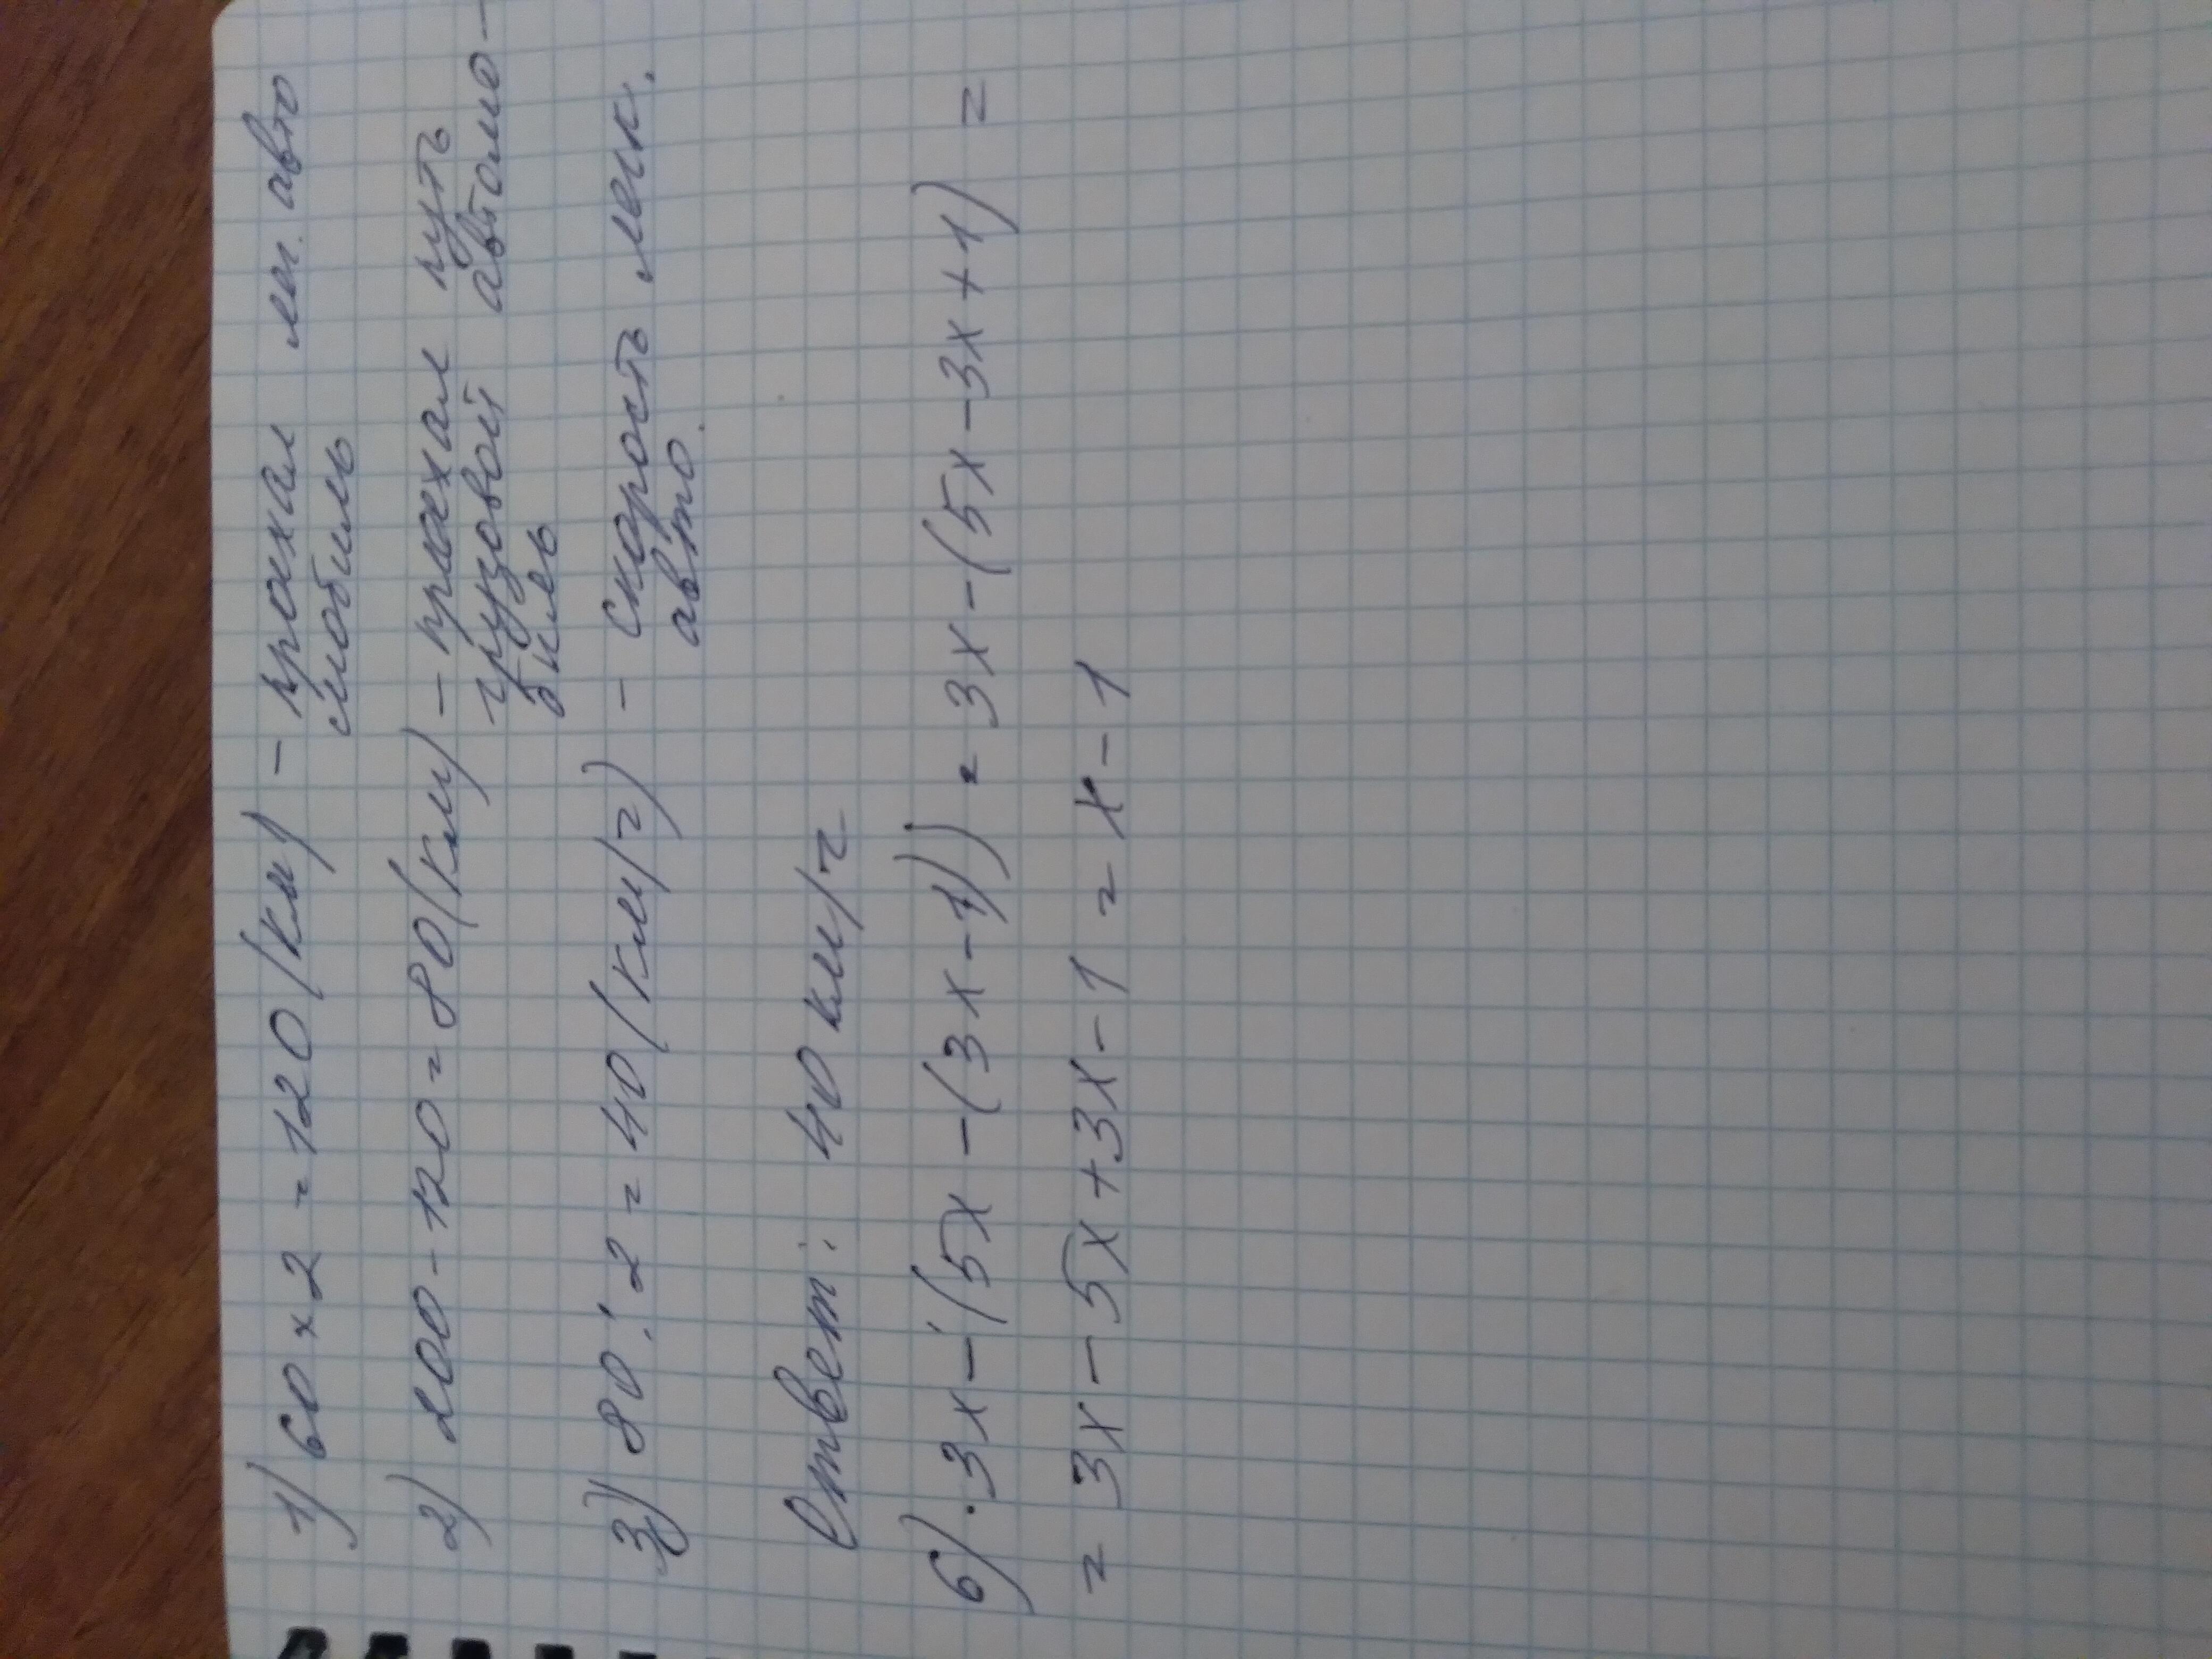 1) 60 x 2 = 120 (км) – проехал лег. авто
мобиль
2) 200 - 120 = 80 (км) – проехал путь
грузовой автомо-
биль
3) 80 : 2 = 40 (км/ч) – скорость легк.
авто.
Ответ: 40 км/ч
6) 3x - (5x - (3x - 1)) = 3x - (5x - 3x + 1) =
= 3x - 5x + 3x - 1 = x - 1